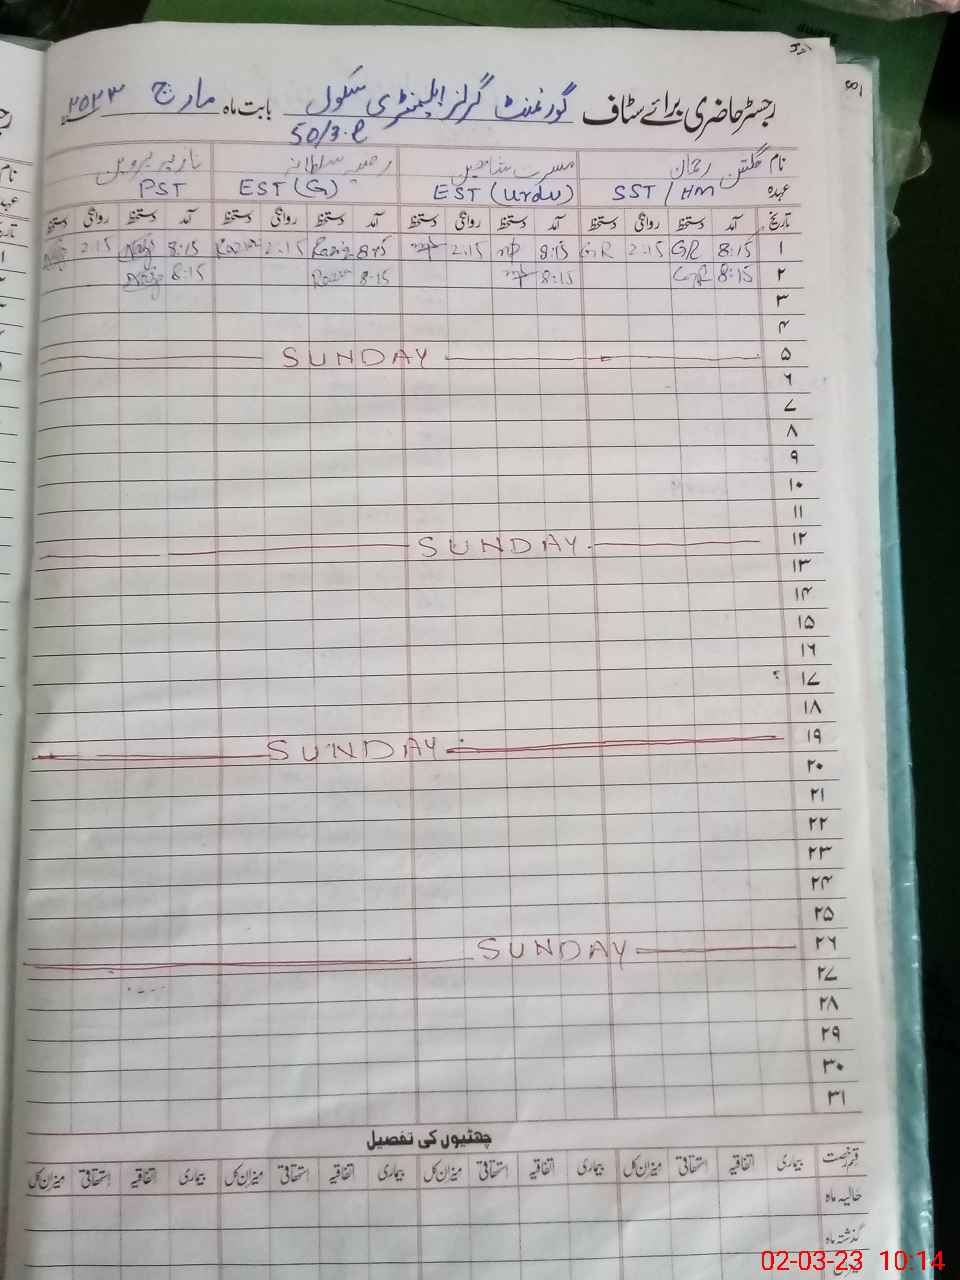 رجسٹر حاضری برائے سٹاف گورنمنٹ گرلز ایلیمنٹری سکول بابت ماہ مارچ ۲۰۲۳
50/3.R
نام گلشن رحمان مسرت شاہین رضیہ سلطانہ نازیہ پروین
عہدہ SST / HM EST (Urdu) EST (G) PST
تاریخ آمد دستخط روانگی دستخط آمد دستخط روانگی دستخط آمد دستخط روانگی دستخط آمد دستخط روانگی دستخط
۱ 8:15 GR 2:15 GR 8:15 2:15 8:15 Razia 2:15 Razia 8:15 Nazi 2:15 Nazi
۲ 8:15 GR 8:15 8:15 8:15 Nazi
۳
۴
۵ SUNDAY
۶
۷
۸
۹
۱۰
۱۱
۱۲ SUNDAY
۱۳
۱۴
۱۵
۱۶
۱۷
۱۸
۱۹ SUNDAY
۲۰
۲۱
۲۲
۲۳
۲۴
۲۵
۲۶ SUNDAY
۲۷
۲۸
۲۹
۳۰
۳۱
چھٹیوں کی تفصیل
قسم رخصت بیماری اتفاقیہ استحقاقی میزان کل بیماری اتفاقیہ استحقاقی میزان کل بیماری اتفاقیہ استحقاقی میزان کل بیماری اتفاقیہ استحقاقی میزان کل
حالیہ ماہ
گذشتہ ماہ
02-03-23 10:14